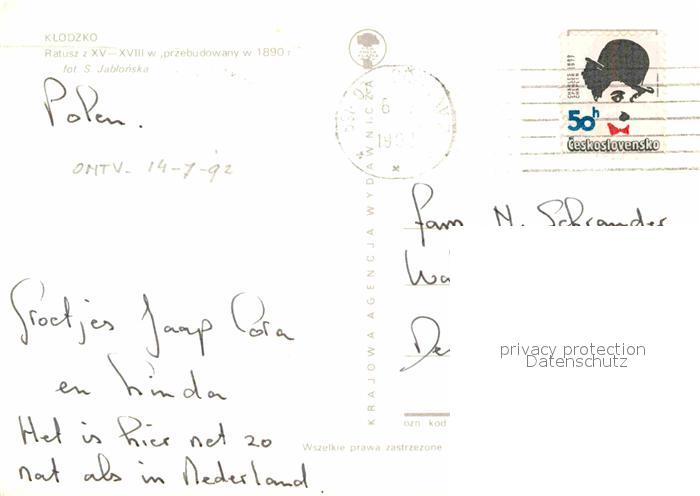 KŁODZKO
Ratusz z XV—XVIII w., przebudowany w 1890 r.
fot. S. Jabłońska
Polen.
ONTV- 14-7-92
Groetjes Jaap Cora
en Linda
Het is hier net zo
nat als in Nederland.
KRAJOWA AGENCJA WYDAWNICZA
CHARLES
CHAPLIN
50h
Československo
fam N. Schrander
Wa
De
privacy protection
Datenschutz
ozn kod
Wszelkie prawa zastrzeżone